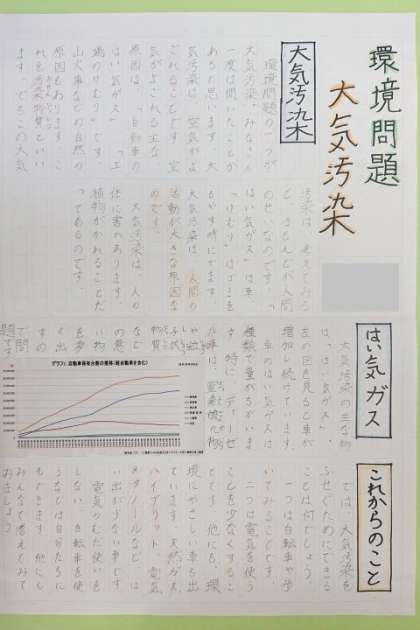 環境問題
大気汚染
大気汚染
環境問題の一つが
大気汚染。みなさん
一度は聞いたことが
あると思います。大
気汚染は、空気がよ
ごれることです。空
気がよごれる主な
原因は、自動車の
はい気ガス」、工
場のけむり」です。
山火事などの自然の
原因もあります。こ
れを汚染物質といい
ます。でもこの大気
汚染は、考えてみる
と、ほとんどが人間
のせいなのです。「
はい気ガス」は車、
「けむり」はゴミを
もやす時にでます。
大気汚染は、人間の
活動が大きな原因な
のです。
大気汚染は、人の
体に害があります。
植物がかれることだ
ってあるのです。
はい気ガス
大気汚染の主な物
は、「はい気ガス」。
左の図を見ると車が
増加し続けています。
車のはい気ガスは
種類で量がちがいま
す。特に、ディーゼ
ル車は、窒素酸化物
や粒
子状
物質
など
の悪
い物
を多
く出
すの
で問
題です
グラフ1. 自動車保有台数の推移(軽自動車を含む)
これからのこと
では、大気汚染を
ふせぐためにできる
ことは何でしょう。
一つは自転車や歩
いてみることです。
二つは電気を使う
ことを少なくするこ
とです。他にも、環
境にやさしい車も出
ています。天然ガス、
ハイブリット、電気
メタノールなど、は
い出が少ない車です。
電気のむだ使いを
しない、自転車を使
うなどは自分たちに
もできます。他にも
みんなで考えてみて
みましょう。